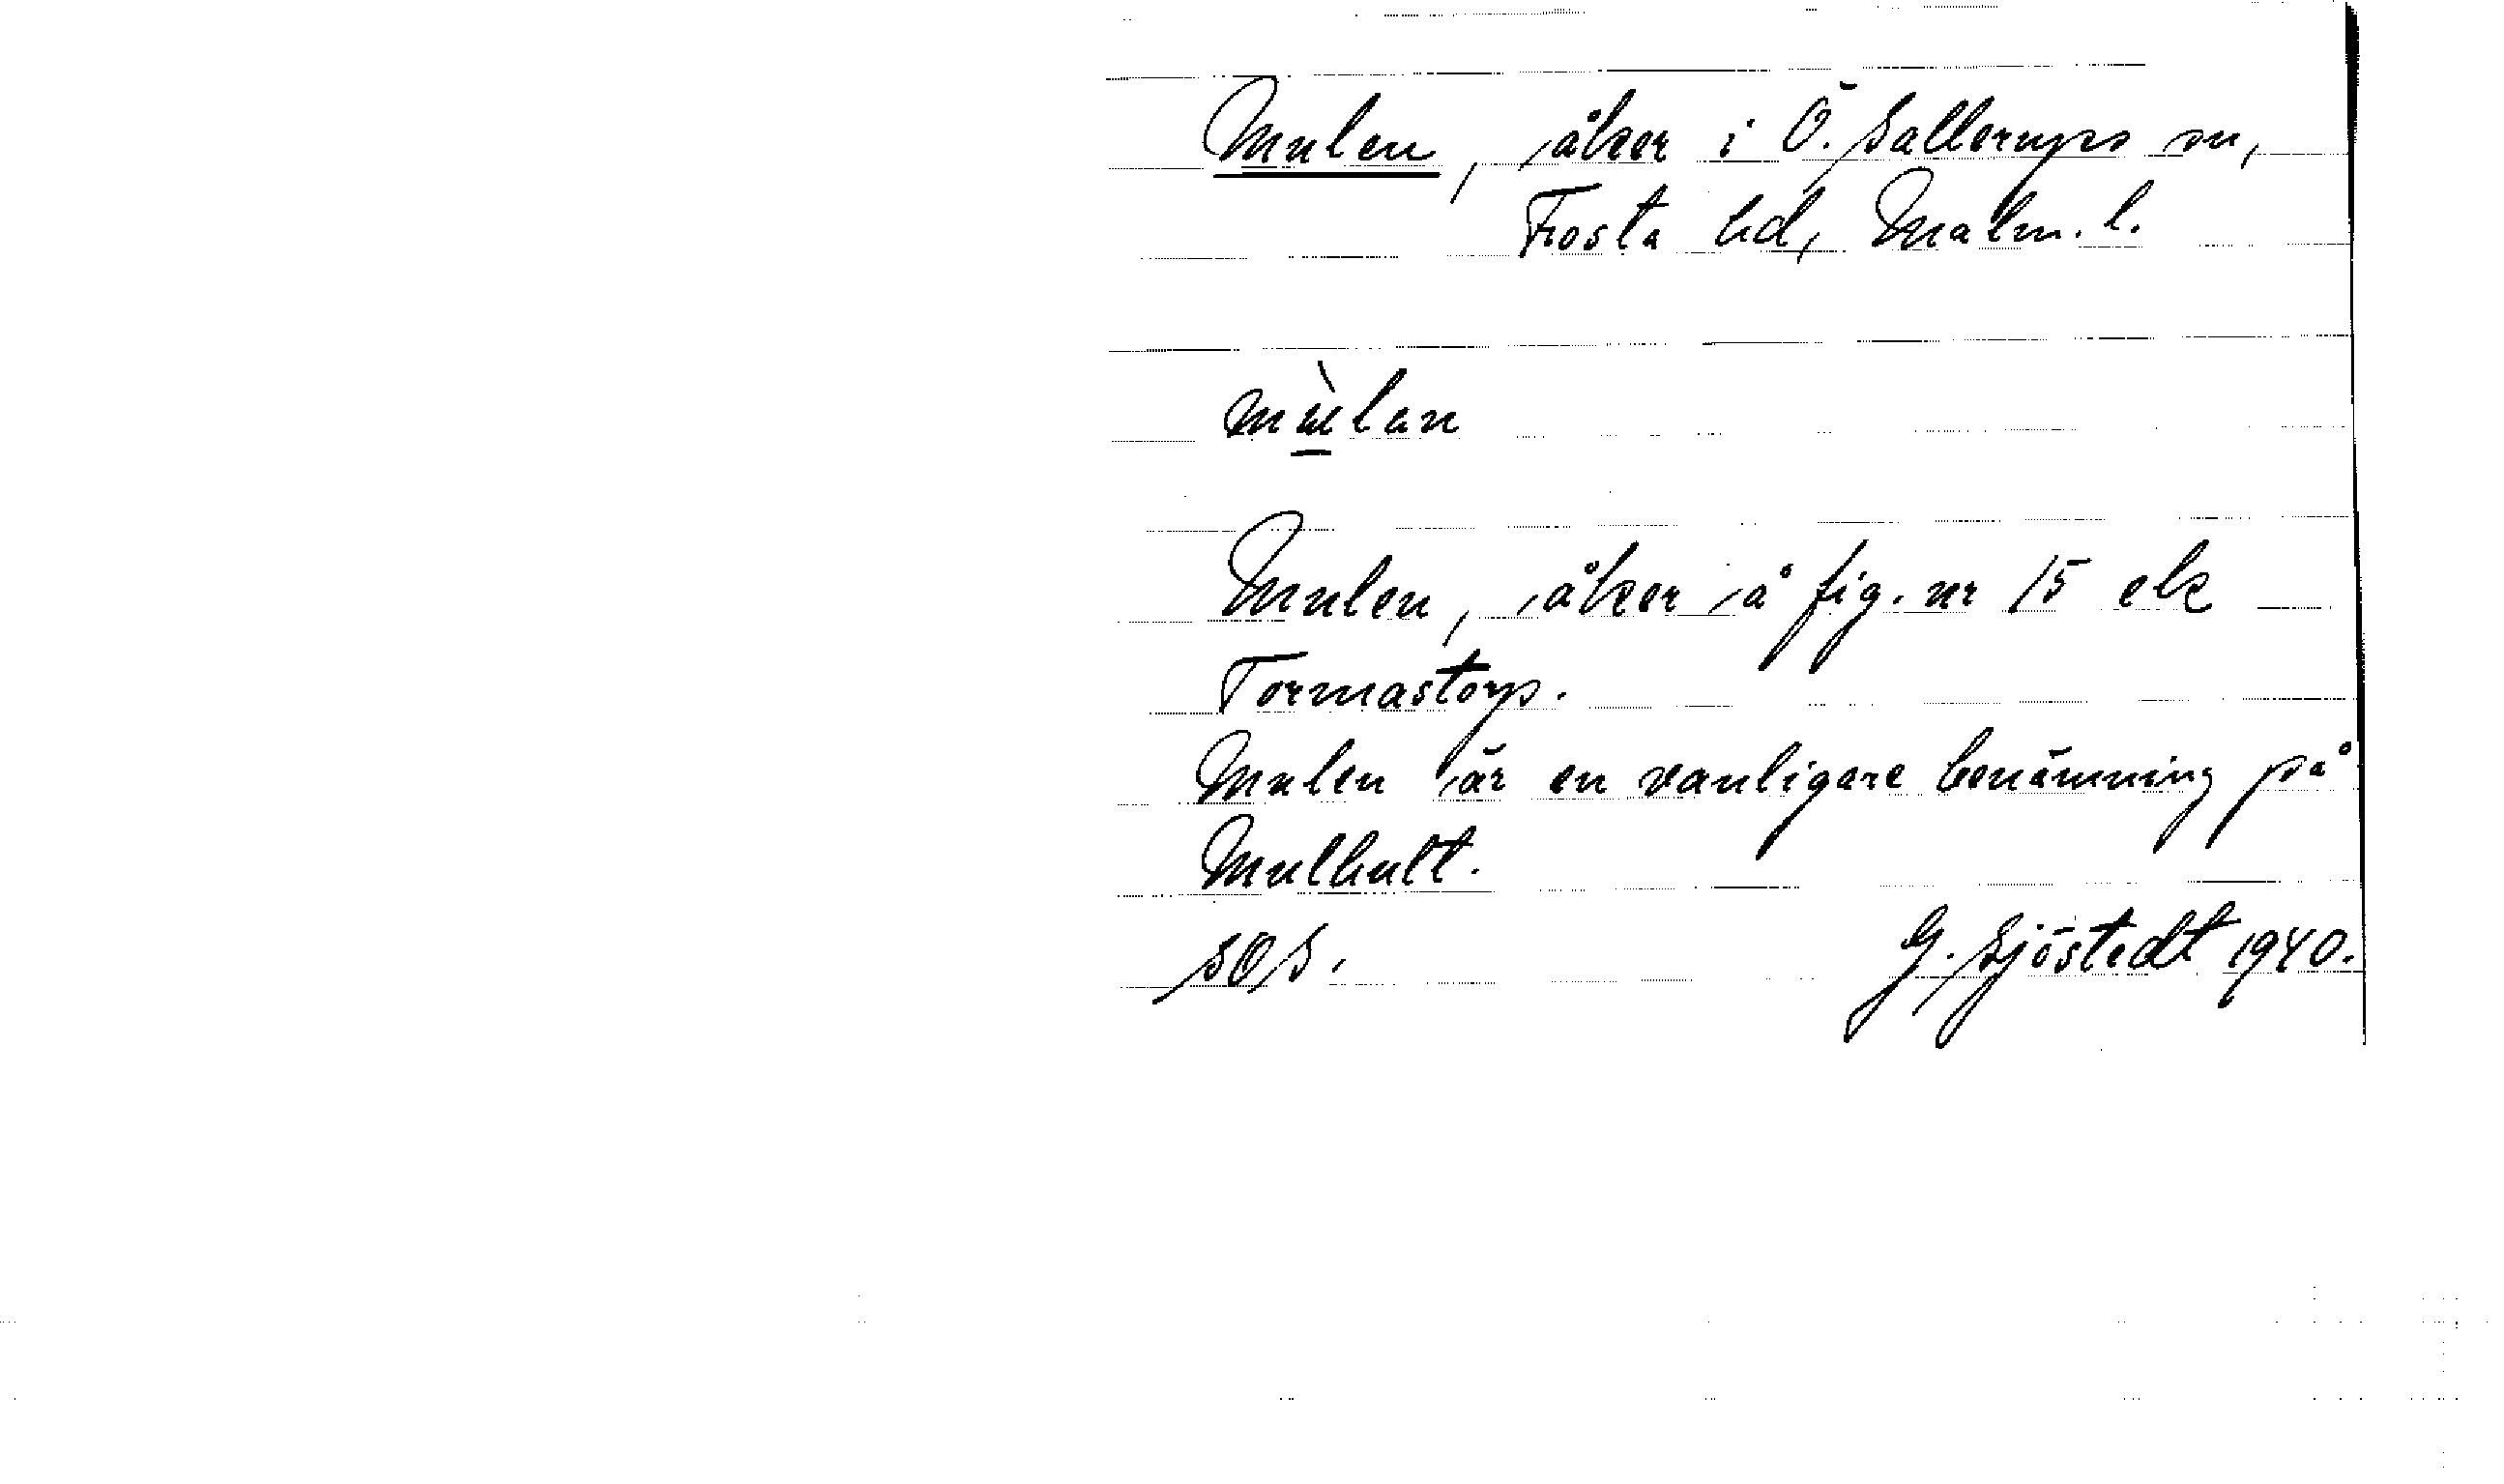 Mulen, åker i Ö. Sallerups sn,
Frosta hd, Malm. l.
mùlan
Mulen, åker å fig. nr 15 ek
Tormastorp.
Mulen är en vanligare benämning på
Mulhult.
SOS.
G. Sjöstedt 1940.